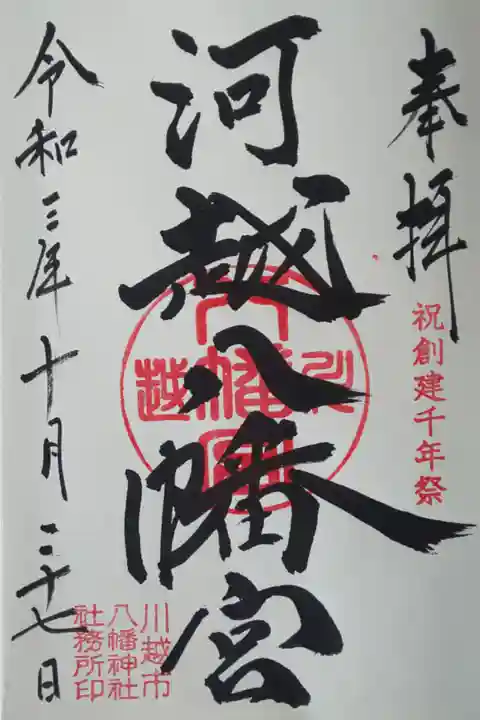 奉拝
祝創建千年祭
河越八幡宮
川越
八幡宮
川越市
八幡神社
社務所印
令和三年十月二十七日